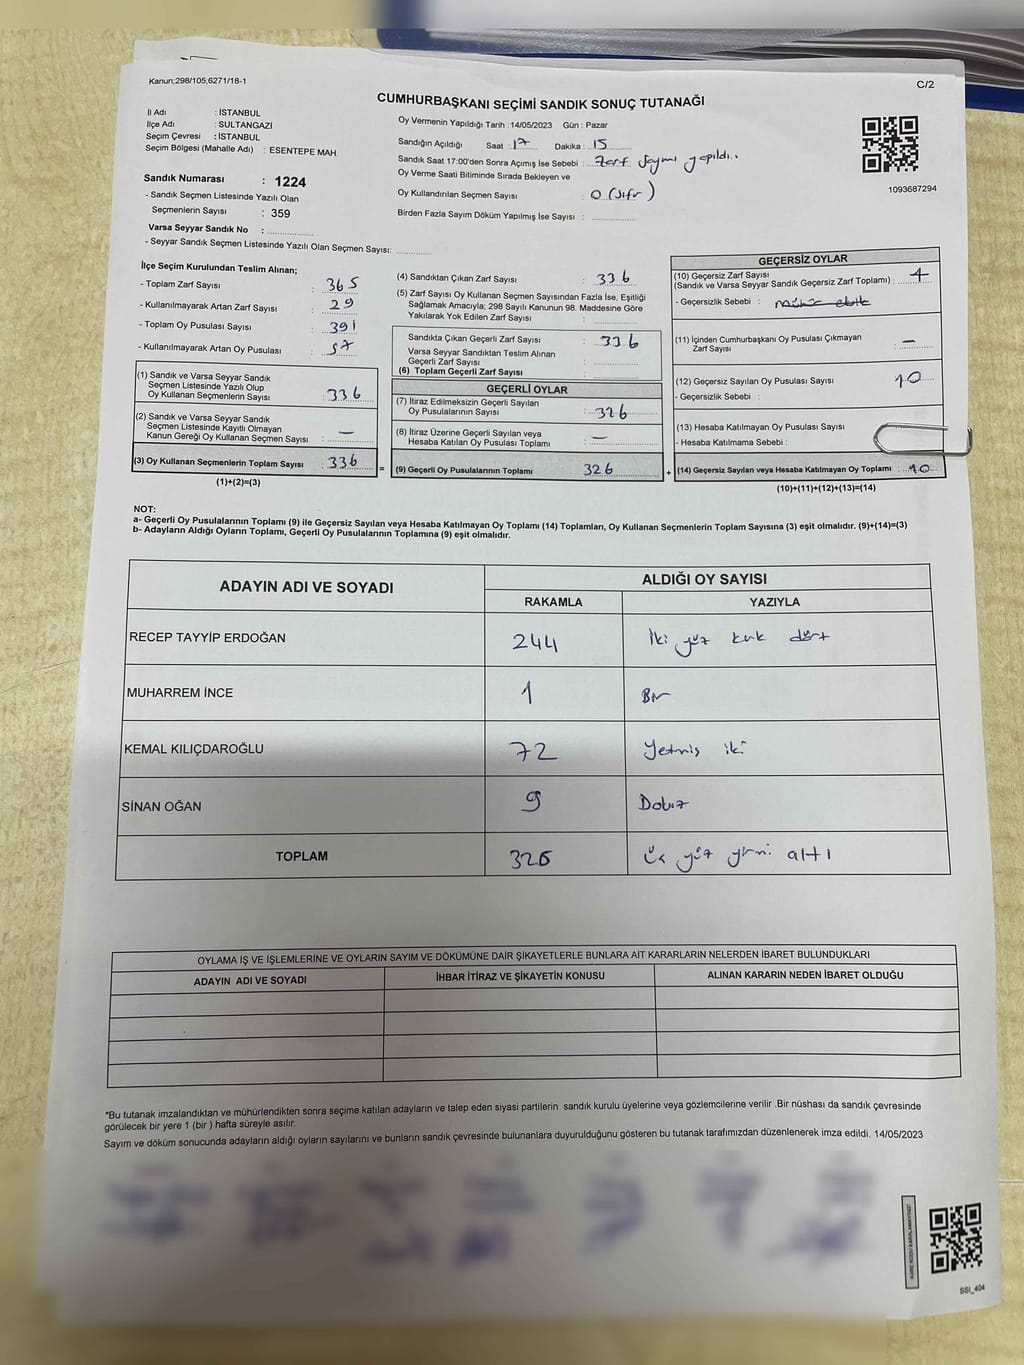 Kanun;298/105;6271/18-1
C/2
CUMHURBAŞKANI SEÇİMİ SANDIK SONUÇ TUTANAĞI
İl Adı : İSTANBUL
İlçe Adı : SULTANGAZİ
Seçim Çevresi : İSTANBUL
Seçim Bölgesi (Mahalle Adı) : ESENTEPE MAH.
Sandık Numarası : 1224
- Sandık Seçmen Listesinde Yazılı Olan
Seçmenlerin Sayısı : 359
Varsa Seyyar Sandık No :
- Seyyar Sandık Seçmen Listesinde Yazılı Olan Seçmen Sayısı:
Oy Vermenin Yapıldığı Tarih :14/05/2023 Gün : Pazar
Sandığın Açıldığı Saat : 17 Dakika : 15
Sandık Saat 17:00'den Sonra Açımış İse Sebebi : Zarf Sayımı yapıldı..
Oy Verme Saati Bitiminde Sırada Bekleyen ve
Oy Kullandırılan Seçmen Sayısı : 0 (sıfır)
Birden Fazla Sayım Döküm Yapılmış İse Sayısı :
1093687294
İlçe Seçim Kurulundan Teslim Alınan;
- Toplam Zarf Sayısı : 365
- Kullanılmayarak Artan Zarf Sayısı : 29
- Toplam Oy Pusulası Sayısı : 391
- Kullanılmayarak Artan Oy Pusulası : 57
(1) Sandık ve Varsa Seyyar Sandık
Seçmen Listesinde Yazılı Olup
Oy Kullanan Seçmenlerin Sayısı : 336
(2) Sandık ve Varsa Seyyar Sandık
Seçmen Listesinde Kayıtlı Olmayan
Kanun Gereği Oy Kullanan Seçmen Sayısı : —
(3) Oy Kullanan Seçmenlerin Toplam Sayısı : 336
(1)+(2)=(3)
=
(4) Sandıktan Çıkan Zarf Sayısı : 336
(5) Zarf Sayısı Oy Kullanan Seçmen Sayısından Fazla İse, Eşitliği
Sağlamak Amacıyla; 298 Sayılı Kanunun 98. Maddesine Göre
Yakılarak Yok Edilen Zarf Sayısı :
Sandıkta Çıkan Geçerli Zarf Sayısı : 336
Varsa Seyyar Sandıktan Teslim Alınan
Geçerli Zarf Sayısı :
(6) Toplam Geçerli Zarf Sayısı :
GEÇERLİ OYLAR
(7) İtiraz Edilmeksizin Geçerli Sayılan
Oy Pusulalarının Sayısı : 326
(8) İtiraz Üzerine Geçerli Sayılan veya
Hesaba Katılan Oy Pusulası Toplamı : —
(9) Geçerli Oy Pusulalarının Toplamı : 326
+
GEÇERSİZ OYLAR
(10) Geçersiz Zarf Sayısı
(Sandık ve Varsa Seyyar Sandık Geçersiz Zarf Toplamı) :
- Geçersizlik Sebebi :
(11) İçinden Cumhurbaşkanı Oy Pusulası Çıkmayan
Zarf Sayısı : —
(12) Geçersiz Sayılan Oy Pusulası Sayısı : 10
- Geçersizlik Sebebi :
(13) Hesaba Katılmayan Oy Pusulası Sayısı
- Hesaba Katılmama Sebebi :
(14) Geçersiz Sayılan veya Hesaba Katılmayan Oy Toplamı : 10
(10)+(11)+(12)+(13)=(14)
NOT:
a- Geçerli Oy Pusulalarının Toplamı (9) ile Geçersiz Sayılan veya Hesaba Katılmayan Oy Toplamı (14) Toplamları, Oy Kullanan Seçmenlerin Toplam Sayısına (3) eşit olmalıdır. (9)+(14)=(3)
b- Adayların Aldığı Oyların Toplamı, Geçerli Oy Pusulalarının Toplamına (9) eşit olmalıdır.
ADAYIN ADI VE SOYADI
ALDIĞI OY SAYISI
RAKAMLA YAZIYLA
RECEP TAYYİP ERDOĞAN 244 İki yüz kırk dört
MUHARREM İNCE 1 Bir
KEMAL KILIÇDAROĞLU 72 Yetmiş iki
SİNAN OĞAN 9 Dokuz
TOPLAM 326 üç yüz yirmi altı
OYLAMA İŞ VE İŞLEMLERİNE VE OYLARIN SAYIM VE DÖKÜMÜNE DAİR ŞİKAYETLERLE BUNLARA AİT KARARLARIN NELERDEN İBARET BULUNDUKLARI
ADAYIN ADI VE SOYADI İHBAR İTİRAZ VE ŞİKAYETİN KONUSU ALINAN KARARIN NEDEN İBARET OLDUĞU
*Bu tutanak imzalandıktan ve mühürlendikten sonra seçime katılan adayların ve talep eden siyasi partilerin sandık kurulu üyelerine veya gözlemcilerine verilir .Bir nüshası da sandık çevresinde
görülecek bir yere 1 (bir ) hafta süreyle asılır.
Sayım ve döküm sonucunda adayların aldığı oyların sayılarını ve bunların sandık çevresinde bulunanlara duyurulduğunu gösteren bu tutanak tarafımızdan düzenlenerek imza edildi. 14/05/2023
SSI_404